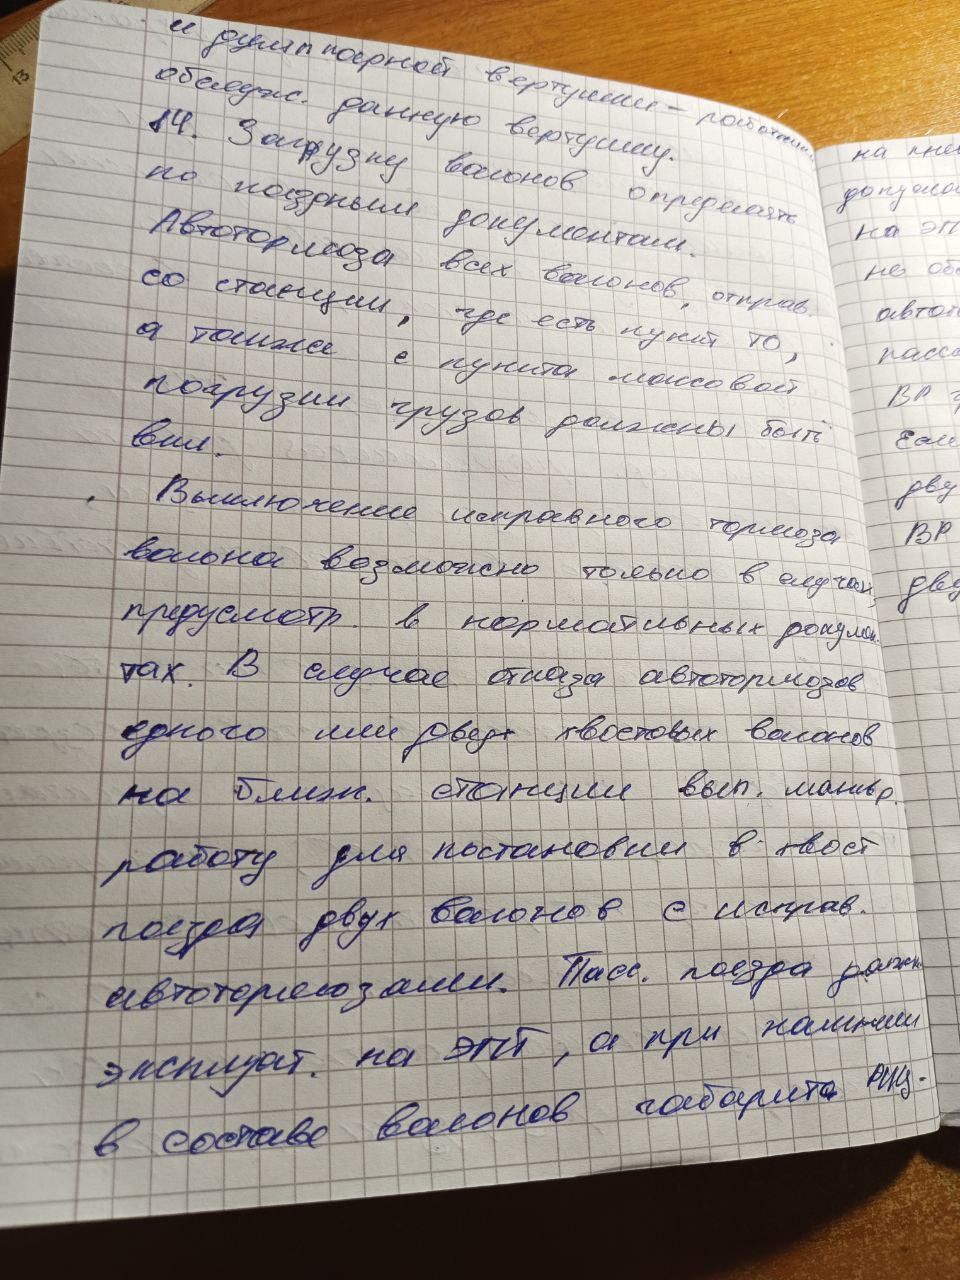 и думпкарной вертушки - работники
обслуж. данную вертушку.
14. Загрузку вагонов определять
по поездным документам.
Автотормоза всех вагонов, отправ.
со станции, где есть пункт ТО,
а также с пункта массовой
погрузки грузов должны быть
вкл.
Выключение исправного тормоза
вагона возможно только в случаях,
предусмотр. в нормативных докумен.
тах. В случае отказа автотормозов
одного или двух хвостовых вагонов
на ближ. станции вып. маневр.
работу для постановки в хвост
поезда двух вагонов с исправ.
автотормозами. Пасс. поезда должн.
эксплуат. на ЭПТ, а при наличии
в составе вагонов габарита РИЦ-
на пнев
допуска
на ЭП
не об
автот
пасса
ВР
Если
дву
ВР
дву